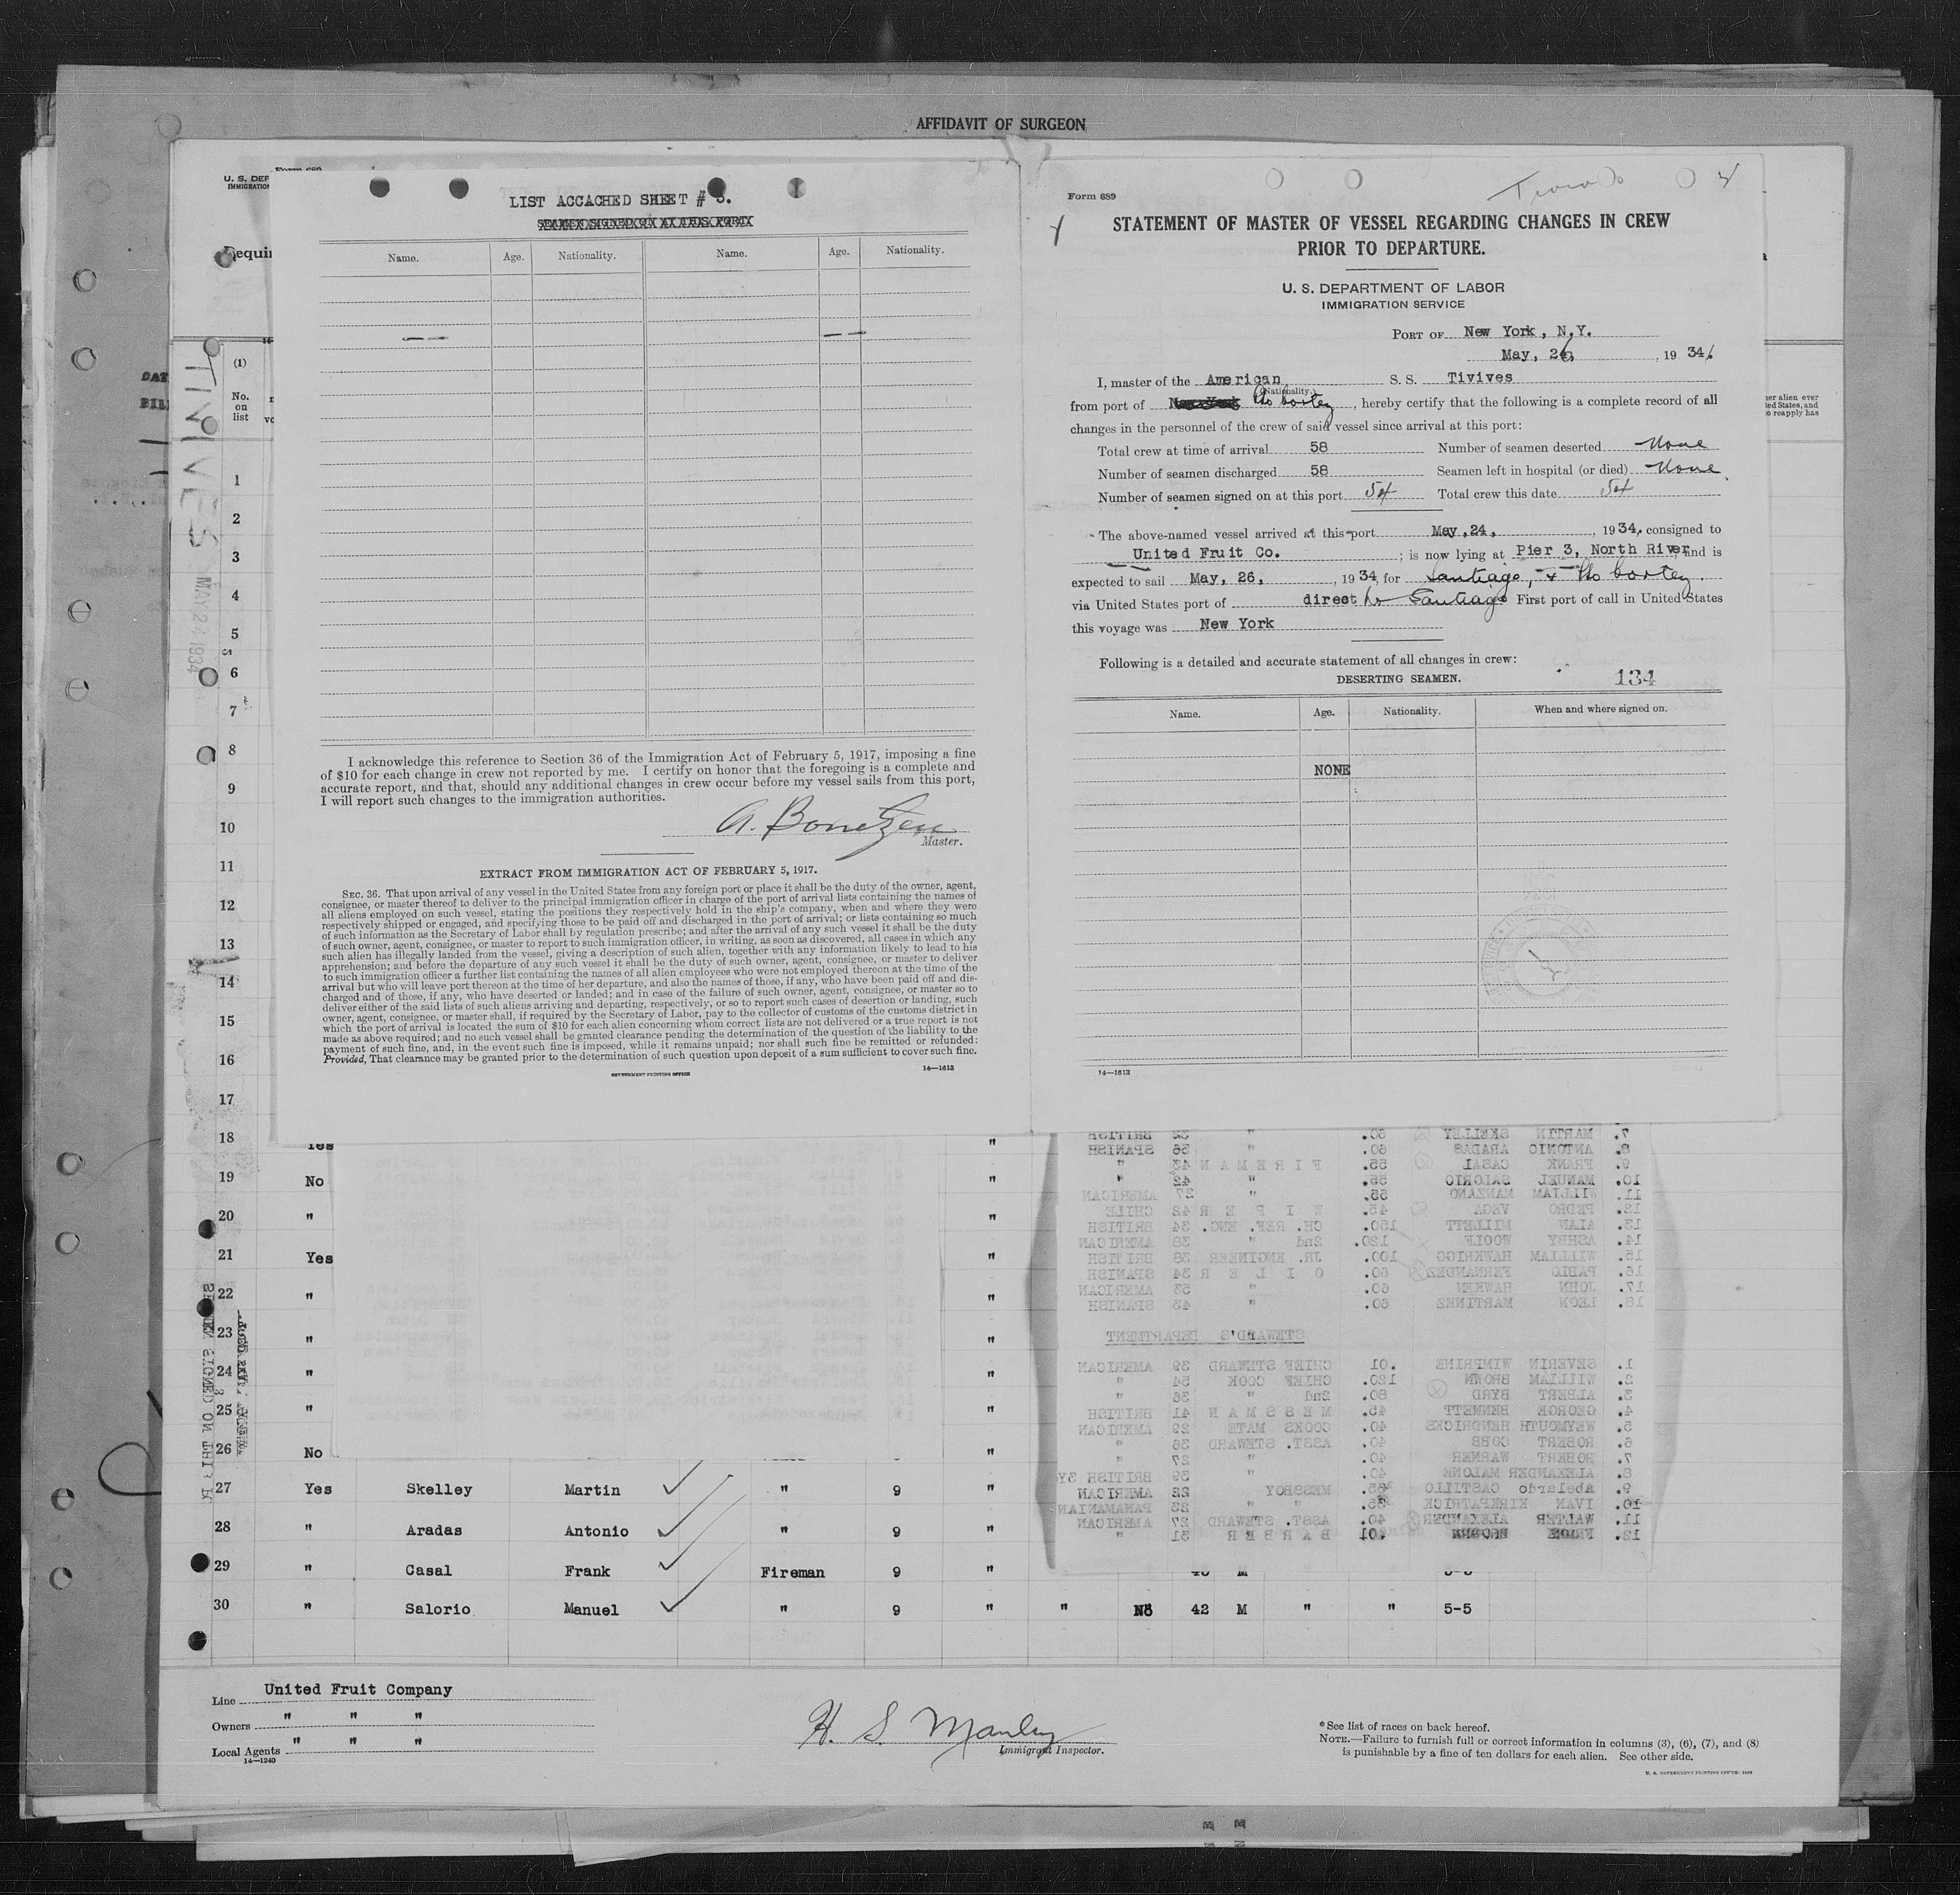 AFFIDAVIT OF SURGEON
U. S. DEP
IMMIGRATION
Form 689
Requir
LIST ACCACHED SHEET # 3.
Name. Age. Nationality. Name. Age. Nationality.
I acknowledge this reference to Section 36 of the Immigration Act of February 5, 1917, imposing a fine
of $10 for each change in crew not reported by me. I certify on honor that the foregoing is a complete and
accurate report, and that, should any additional changes in crew occur before my vessel sails from this port,
I will report such changes to the immigration authorities.
Master.
EXTRACT FROM IMMIGRATION ACT OF FEBRUARY 5, 1917.
SEC. 36. That upon arrival of any vessel in the United States from any foreign port or place it shall be the duty of the owner, agent,
consignee, or master thereof to deliver to the principal immigration officer in charge of the port of arrival lists containing the names of
all aliens employed on such vessel, stating the positions they respectively hold in the ship's company, when and where they were
respectively shipped or engaged, and specifying those to be paid off and discharged in the port of arrival; or lists containing so much
of such information as the Secretary of Labor shall by regulation prescribe; and after the arrival of any such vessel it shall be the duty
of such owner, agent, consignee, or master to report to such immigration officer, in writing, as soon as discovered, all cases in which any
such alien has illegally landed from the vessel, giving a description of such alien, together with any information likely to lead to his
apprehension; and before the departure of any such vessel it shall be the duty of such owner, agent, consignee, or master to deliver
to such immigration officer a further list containing the names of all alien employees who were not employed thereon at the time of the
arrival but who will leave port thereon at the time of her departure, and also the names of those, if any, who have been paid off and dis-
charged and of those, if any, who have deserted or landed; and in case of the failure of such owner, agent, consignee, or master so to
deliver either of the said lists of such aliens arriving and departing, respectively, or so to report such cases of desertion or landing, such
owner, agent, consignee, or master shall, if required by the Secretary of Labor, pay to the collector of customs of the customs district in
which the port of arrival is located the sum of $10 for each alien concerning whom correct lists are not delivered or a true report is not
made as above required; and no such vessel shall be granted clearance pending the determination of the question of the liability to the
payment of such fine, and, in the event such fine is imposed, while it remains unpaid; nor shall such fine be remitted or refunded:
Provided, That clearance may be granted prior to the determination of such question upon deposit of a sum sufficient to cover such fine.
GOVERNMENT PRINTING OFFICE 14—1613
Form 689
STATEMENT OF MASTER OF VESSEL REGARDING CHANGES IN CREW
PRIOR TO DEPARTURE.
U. S. DEPARTMENT OF LABOR
IMMIGRATION SERVICE
PORT OF New York, N.Y.
May, 26, 1934.
I, master of the American S. S. Tivives
(Nationality.)
from port of Pto Cortez, hereby certify that the following is a complete record of all
changes in the personnel of the crew of said vessel since arrival at this port:
Total crew at time of arrival 58 Number of seamen deserted None
Number of seamen discharged 58 Seamen left in hospital (or died) None
Number of seamen signed on at this port 54 Total crew this date 54
The above-named vessel arrived at this port May, 24, 1934, consigned to
United Fruit Co. ; is now lying at Pier 3, North River, and is
expected to sail May, 26, 1934, for Santiago, + Pto Cortez.
via United States port of direct to Santiago First port of call in United States
this voyage was New York
Following is a detailed and accurate statement of all changes in crew:
DESERTING SEAMEN. 134
Name. Age. Nationality. When and where signed on.
NONE
14—1613
TIVIVES MAY 24 1934
(1)
No.
on
list
1
2
3
4
5
6
7
8
9
10
11
12
13
14
15
16
17
18 Yes "
19 No "
20 " "
21 Yes "
22 " "
23 " "
24 " "
25 " "
26 No "
27 Yes Skelley Martin " 9 "
28 " Aradas Antonio " 9 "
29 " Casal Frank Fireman 9 "
30 " Salorio Manuel " 9 " " No 42 M " " 5-5
7. MARTIN SKELLEY 60. " 32 BRITISH
8. ANTONIO ARADAS 60. " 36 SPANISH
9. FRANK CASAL 55. FIREMAN 43 "
10. MANUEL SALORIO 55. " 42 "
11. WILLIAM MANZANO 55. " 27 AMERICAN
12. PEDRO VEGA 45. WIPER 42 CHILE
13. ALAN MILLETT 150. CH. REF. ENG. 34 BRITISH
14. ASHBY WOOLF 120. 2nd " 38 AMERICAN
15. WILLIAM HAWKRIGG 100. JR. ENGINEER 38 BRITISH
16. PABLO FERNANDEZ 60. OILER 34 SPANISH
17. JOHN HAWKEN 60. " 53 AMERICAN
18. LEON MARTINEZ 60. " 43 SPANISH
STEWARD'S DEPARTMENT
1. SEVERIN WIMPRINE .01 CHIEF STEWARD 39 AMERICAN
2. WILLIAM BROWN 120. CHIEF COOK 54 "
3. ALBERT BYRD 80. 2nd " 36 "
4. GEORGE BENNETT 45. MESSMAN 41 BRITISH
5. WEYMOUTH HENDRICKS 40. COOKS MATE 29 AMERICAN
6. ROBERT COBB 40. ASST. STEWARD 36 "
7. ROBERT WARNER 40. " 27 "
8. ALEXANDER MALONE 40. " 39 BRITISH
9. Abelardo CASTILLO 35. MESSBOY 22 AMERICAN
10. IVAN KIRKPATRICK 35. " " 23 PANAMANIAN
11. WALTER ALEXANDER 40. ASST. STEWARD 27 AMERICAN
12. .01 BARBER 31 "
Line United Fruit Company
Owners " " "
Local Agents " " "
14—1240
H. S. Manley
Immigrant Inspector.
*See list of races on back hereof.
NOTE.—Failure to furnish full or correct information in columns (3), (6), (7), and (8)
is punishable by a fine of ten dollars for each alien. See other side.
U. S. GOVERNMENT PRINTING OFFICE: